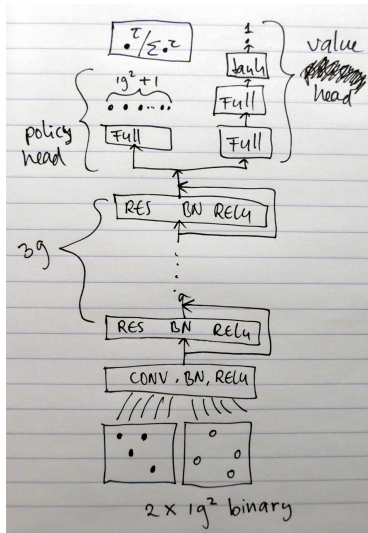 •^τ/Σ•^τ
1
tanh
value
head
19² + 1
Full
policy
head
Full
Full
RES BN RELU
39
RES BN RELU
CONV, BN, RELU
2 x 19² binary